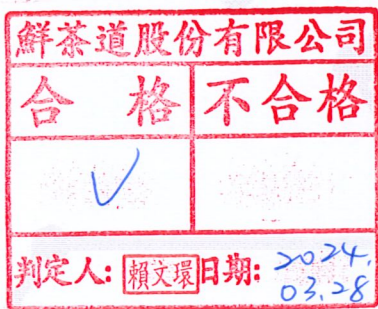 鮮茶道股份有限公司
合格 不合格
✓
判定人: 賴文環 日期: 2024.03.28